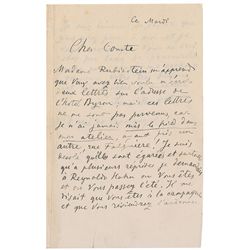 Ce Mardi
Cher Comte
Madame Rubinstein m'apprend
que vous avez bien voulu m'écrire
deux lettres sur l'adresse de
l'hotel Byron; mais ces lettres
ne me sont pas parvenues car
je n'ai jamais mis le pied dans
mon atelier ayant pris un
autre, rue Falguière. Je suis
désolé qu'elles soient égarées
qu'à plusieurs reprises je demandais
à Reynaldo Hahn où vous êtes
et où vous passez l'été. Il me
disait que vous êtes à la campagne
et que vous reviendrez